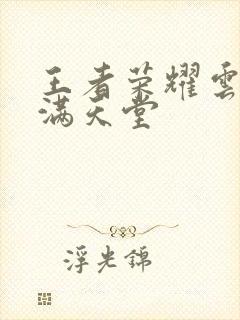 王者荣耀雲
满天堂
浮光锦